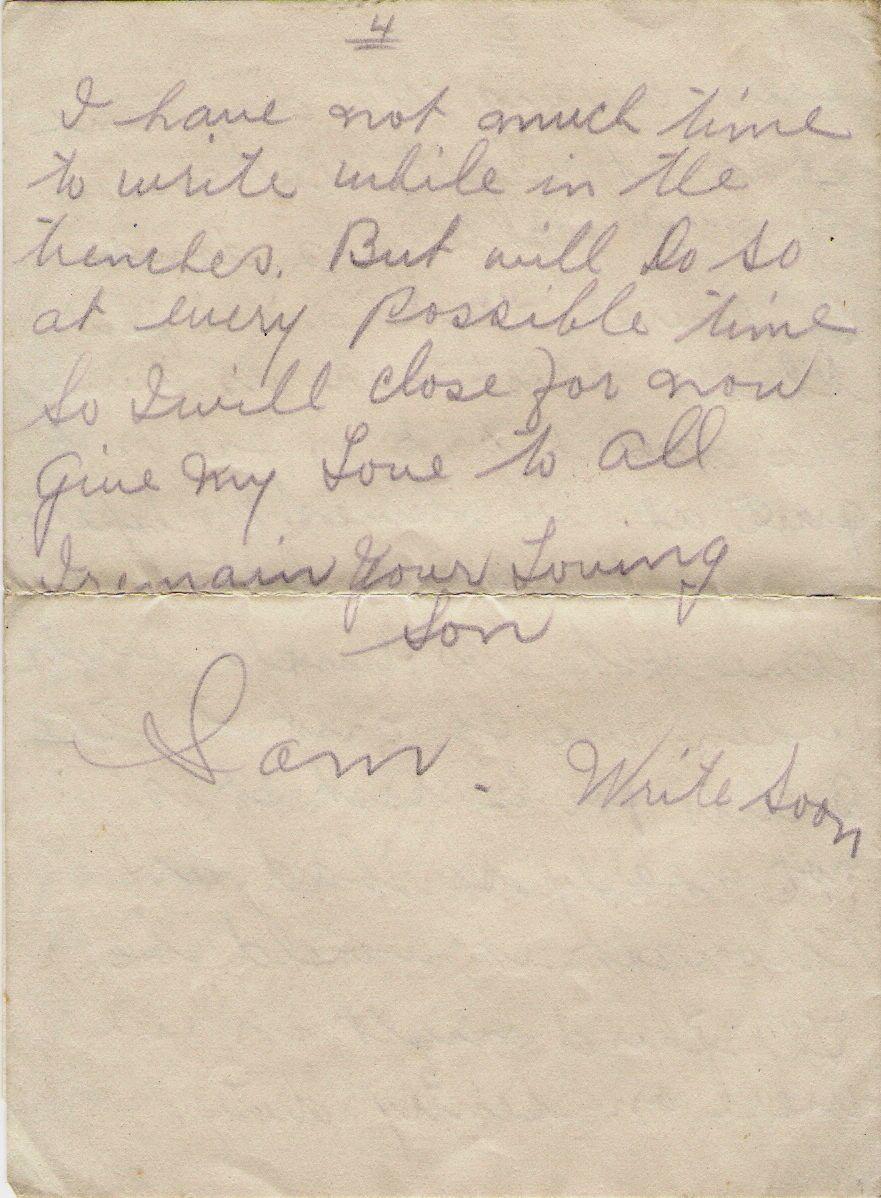 4
I have not much time
to write while in the
trenches. But will Do so
at every Possible time
So I will close for now
Give my Love to all
I remain Your Loving
Son
Sam. Write Soon